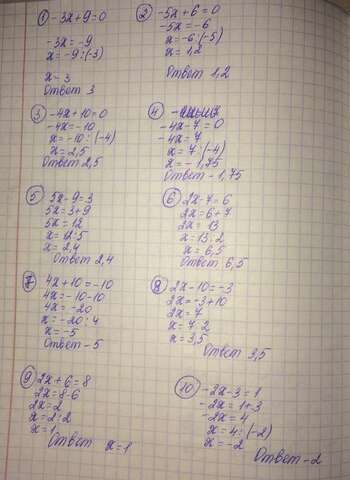 1 -3x+9=0
-3x=-9
x=-9:(-3)
x=3
Ответ 3
2 -5x+6=0
-5x=-6
x=-6:(-5)
x=1,2
Ответ 1,2
3 -4x+10=0
-4x=-10
x=-10:(-4)
x=2,5
Ответ 2,5
4
-4x-7=0
-4x=7
x=7:(-4)
x=-1,75
Ответ -1,75
5 5x-9=3
5x=3+9
5x=12
x=12:5
x=2,4
Ответ 2,4
6 2x-7=6
2x=6+7
2x=13
x=13:2
x=6,5
Ответ 6,5
7 4x+10=-10
4x=-10-10
4x=-20
x=-20:4
x=-5
Ответ -5
8 2x-10=-3
2x=-3+10
2x=7
x=7:2
x=3,5
Ответ 3,5
9 2x+6=8
2x=8-6
2x=2
x=2:2
x=1
Ответ x=1
10 -2x-3=1
-2x=1+3
-2x=4
x=4:(-2)
x=-2
Ответ -2